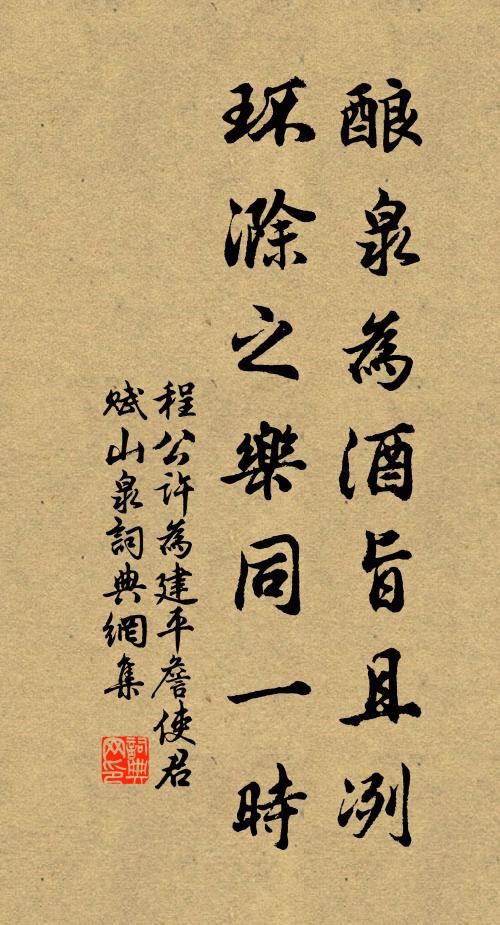 酿泉為酒旨且冽
环滁之樂同一時
程公許為建平詹使君
賦山泉詞典網集
詞典网印